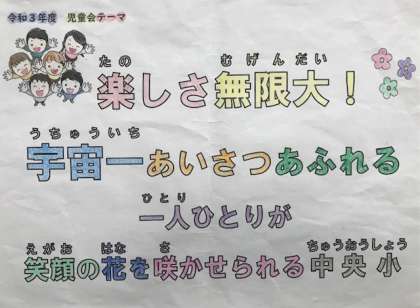 令和３年度　児童会テーマ
たの　むげんだい
楽しさ無限大！
うちゅういち
宇宙一あいさつあふれる
ひとり
一人ひとりが
えがお　はな　さ　ちゅうおうしょう
笑顔の花を咲かせられる中央小